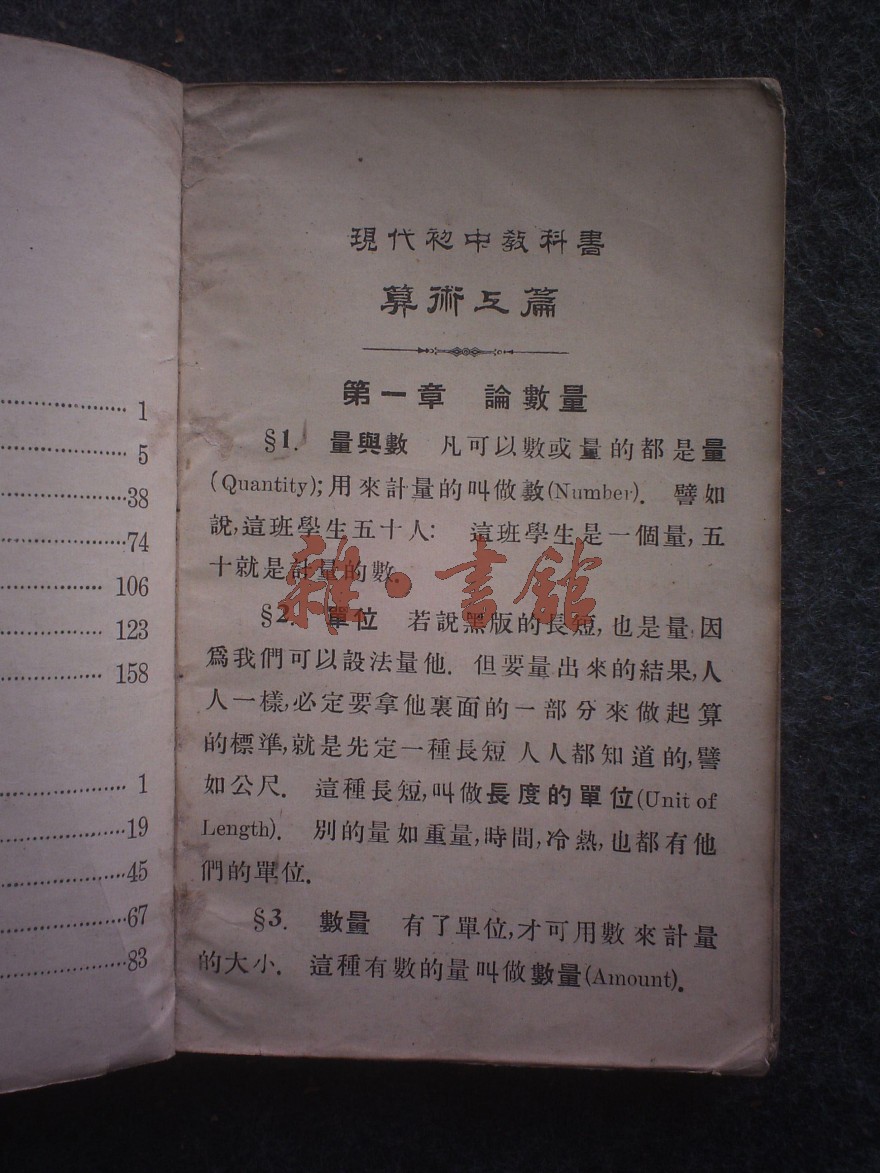 1
5
38
74
106
123
158
1
19
45
67
83
現代初中教科書
算術上篇
第一章 論數量
§1. 量與數 凡可以數或量的都是量
(Quantity);用來計量的叫做數(Number). 譬如
說,這班學生五十人: 這班學生是一個量,五
十就是計量的數.
§2. 單位 若說黑版的長短,也是量,因
爲我們可以設法量他. 但要量出來的結果,人
人一樣,必定要拿他裏面的一部分來做起算
的標準,就是先定一種長短人人都知道的,譬
如公尺. 這種長短,叫做長度的單位(Unit of
Length). 別的量如重量,時間,冷熱,也都有他
們的單位.
§3. 數量 有了單位,才可用數來計量
的大小. 這種有數的量叫做數量(Amount).
雜·書館